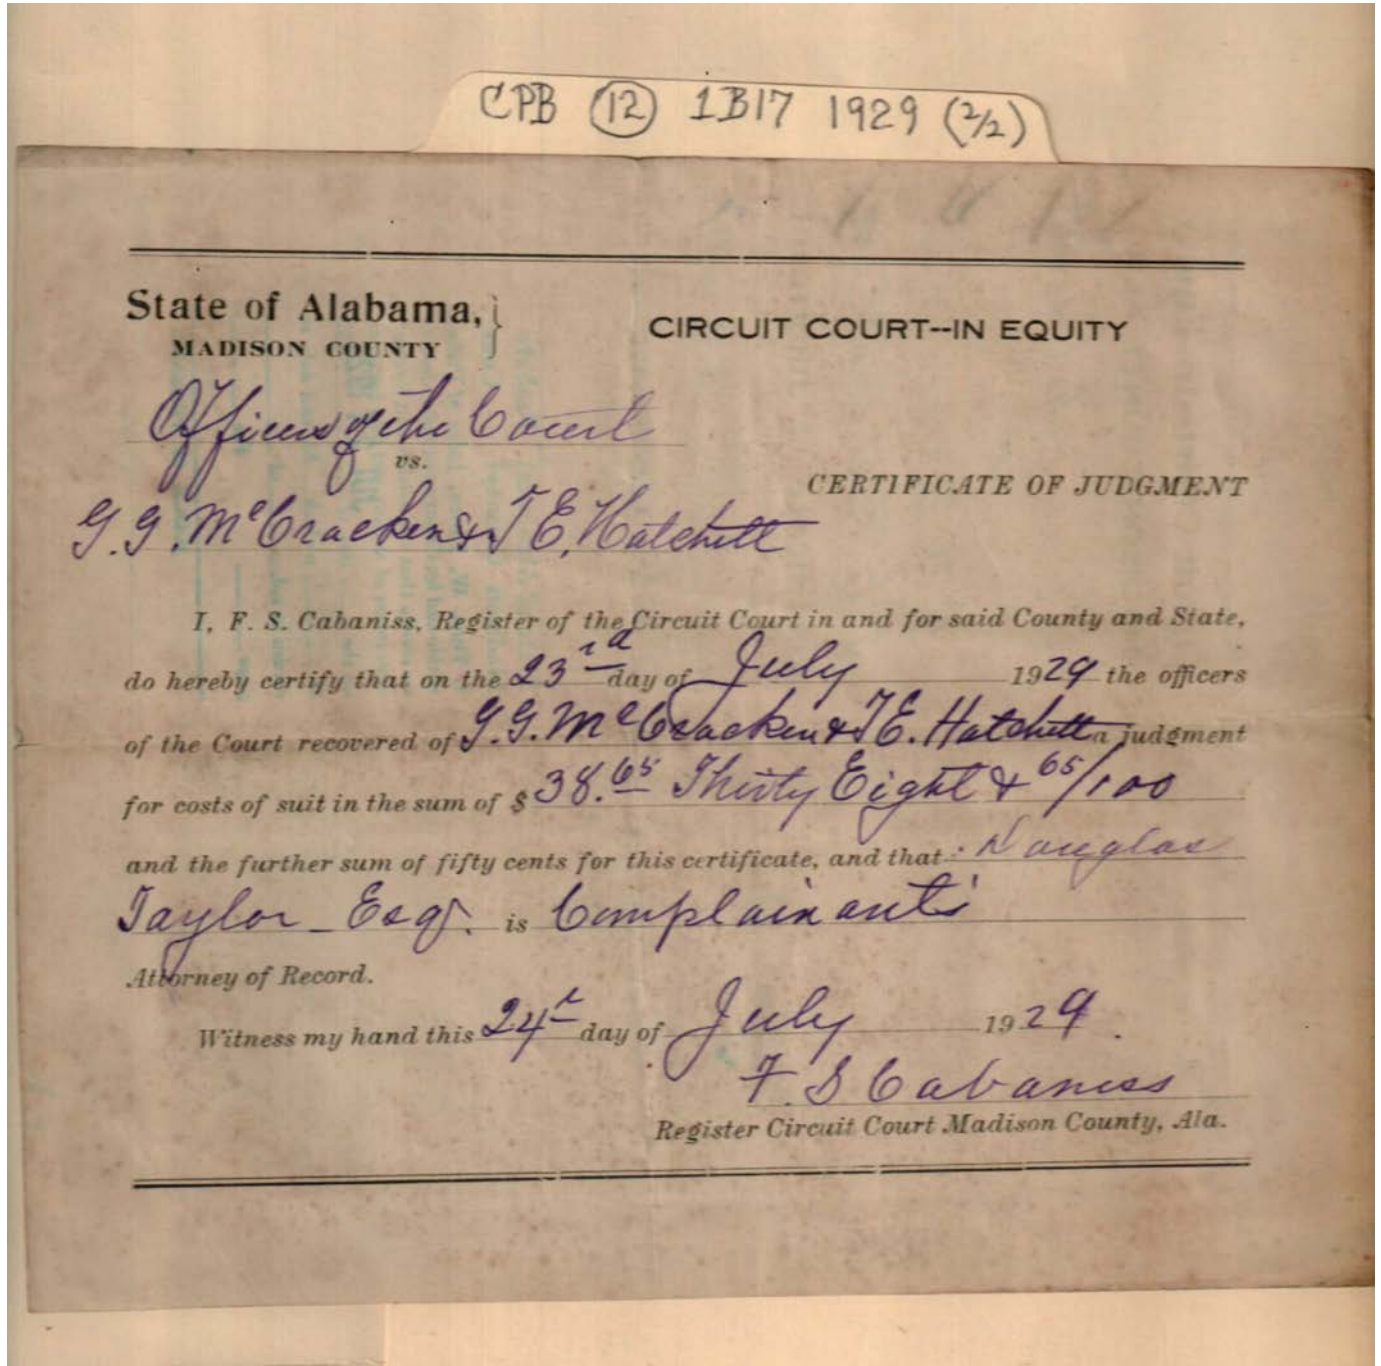 CPB (12) 1B17 1929 (2/2)
State of Alabama,
MADISON COUNTY
CIRCUIT COURT--IN EQUITY
Officers of the Court
vs.
CERTIFICATE OF JUDGMENT
G.G. McCracken & T E. Hatchett
I, F. S. Cabaniss, Register of the Circuit Court in and for said County and State,
do hereby certify that on the 23rd day of July 1929 the officers
of the Court recovered of G.G. McCracken & T E. Hatchett a judgment
for costs of suit in the sum of $ 38.65 Thirty Eight & 65/100
and the further sum of fifty cents for this certificate, and that Douglas
Taylor Esqr. is Complainant's
Attorney of Record.
Witness my hand this 24 day of July 1929.
F. S Cabaniss
Register Circuit Court Madison County, Ala.